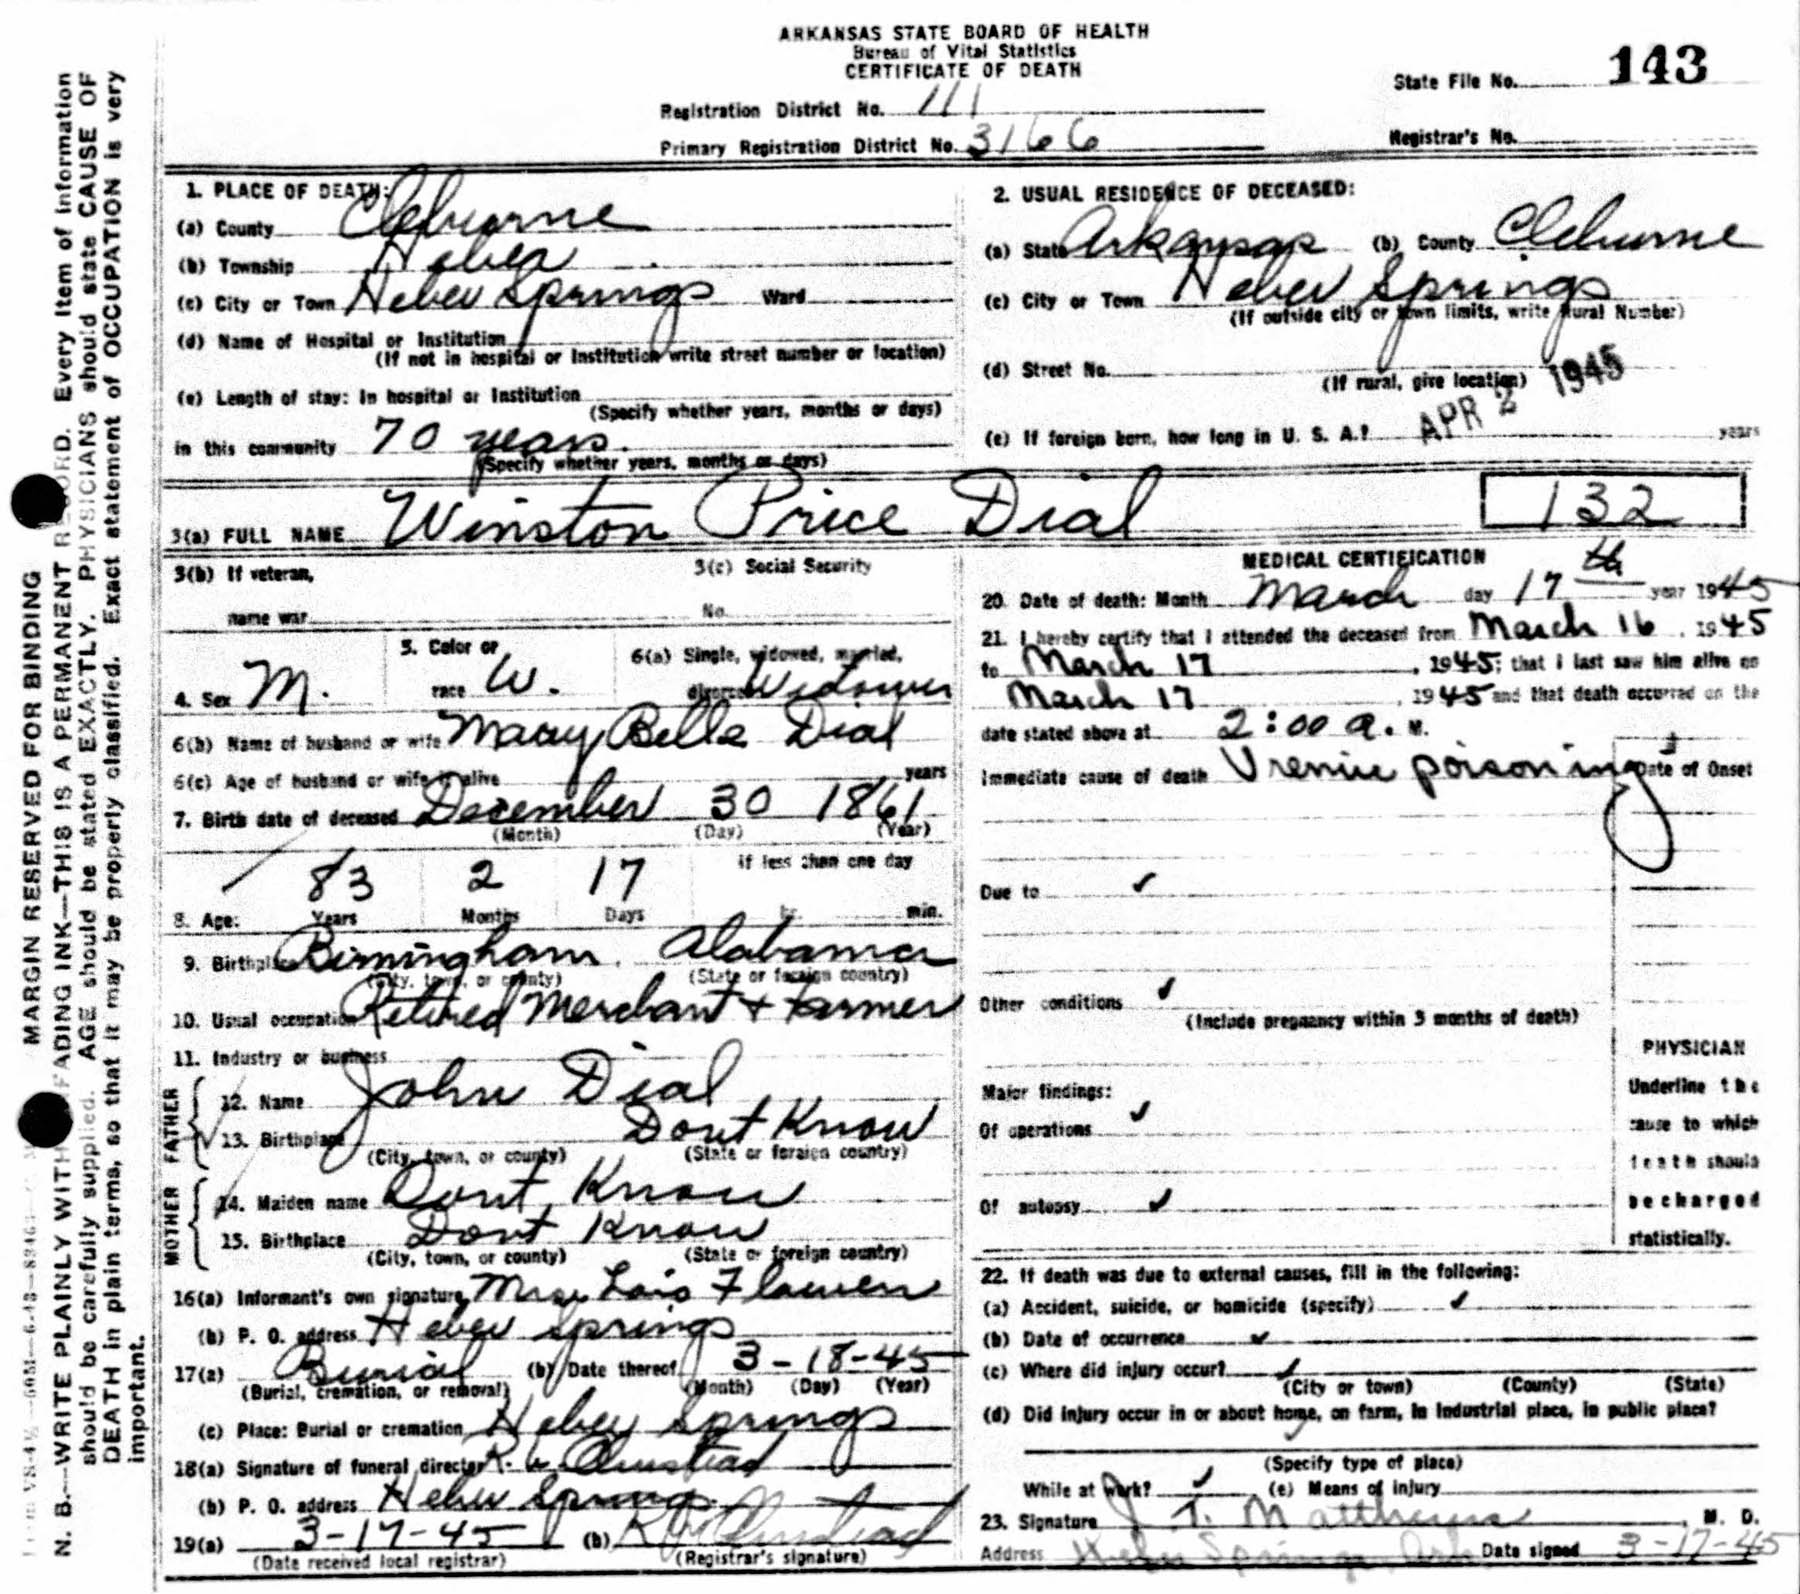 ARKANSAS STATE BOARD OF HEALTH
Bureau of Vital Statistics
CERTIFICATE OF DEATH
State File No. 143
Registration District No. 111
Primary Registration District No. 3166
Registrar's No.
1. PLACE OF DEATH:
(a) County Cleburne
(b) Township Heber
(c) City or Town Heber Springs Ward
(d) Name of Hospital or Institution
(If not in hospital or Institution write street number or location)
(e) Length of stay: In hospital or Institution
(Specify whether years, months or days)
in this community 70 years.
(Specify whether years, months or days)
2. USUAL RESIDENCE OF DECEASED:
(a) State Arkansas (b) County Cleburne
(c) City or Town Heber Springs
(If outside city or town limits, write Rural Number)
(d) Street No.
(If rural, give location)
APR 2 1945
(e) If foreign born, how long in U. S. A.? years
3(a) FULL NAME Winston Price Dial
132
3(b) If veteran,
name war
3(c) Social Security
No.
4. Sex M.
5. Color or
race W.
6(a) Single, widowed, married,
divorced Widower
6(b) Name of husband or wife Mary Belle Dial
6(c) Age of husband or wife if alive years
7. Birth date of deceased December 30 1861
(Month) (Day) (Year)
83 2 17 If less than one day
8. Age: Years Months Days hr. min.
9. Birthplace Birmingham, Alabama
(City, town, or county) (State or foreign country)
10. Usual occupation Retired Merchant + Farmer
11. Industry or business
FATHER
12. Name John Dial
13. Birthplace Dont Know
(City, town, or county) (State or foreign country)
MOTHER
14. Maiden name Dont Know
15. Birthplace Dont Know
(City, town, or county) (State or foreign country)
16(a) Informant's own signature Mrs. Lois Flowers
(b) P. O. address Heber Springs
17(a) Burial (b) Date thereof 3-18-45
(Burial, cremation, or removal) (Month) (Day) (Year)
(c) Place: Burial or cremation Heber Springs
18(a) Signature of funeral director R. Olmstead
(b) P. O. address Heber Springs
19(a) 3-17-45 (b) Olmstead
(Date received local registrar) (Registrar's signature)
MEDICAL CERTIFICATION
20. Date of death: Month March day 17th year 1945
21. I hereby certify that I attended the deceased from March 16, 1945
to March 17, 1945; that I last saw him alive on
March 17, 1945 and that death occurred on the
date stated above at 2:00 a. M.
Immediate cause of death Uremic poisoning Date of Onset
Due to ✓
Other conditions ✓
(Include pregnancy within 3 months of death)
Major findings:
Of operations ✓
Of autopsy ✓
PHYSICIAN
Underline the
cause to which
death should
be charged
statistically.
22. If death was due to external causes, fill in the following:
(a) Accident, suicide, or homicide (specify) ✓
(b) Date of occurrence ✓
(c) Where did injury occur? ✓
(City or town) (County) (State)
(d) Did injury occur in or about home, on farm, in industrial place, in public place?
(Specify type of place)
While at work? ✓ (e) Means of injury
23. Signature J. T. Matthews, M. D.
Address Heber Springs, Ark Date signed 3-17-45
MARGIN RESERVED FOR BINDING
N. B.—WRITE PLAINLY WITH FADING INK—THIS IS A PERMANENT RECORD. Every item of information
should be carefully supplied. AGE should be stated EXACTLY. PHYSICIANS should state CAUSE OF
DEATH in plain terms, so that it may be properly classified. Exact statement of OCCUPATION is very
important.